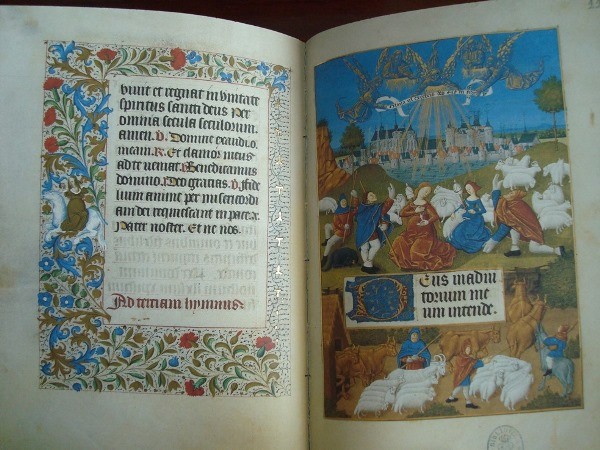 vivit et regnat in unitate
spiritus sancti deus Per
omnia secula seculorum.
amen. V. Domine exaudi o.
meam. R. Et clamor meus
ad te veniat. Benedicamus
domino. Deo gratias. V. fide
lium anime per misericordi
am dei requiescant in pace. R.
Pater noster. Et ne nos.
Ad terciam hymnus.
Eus in adiu
torium me
um intende.